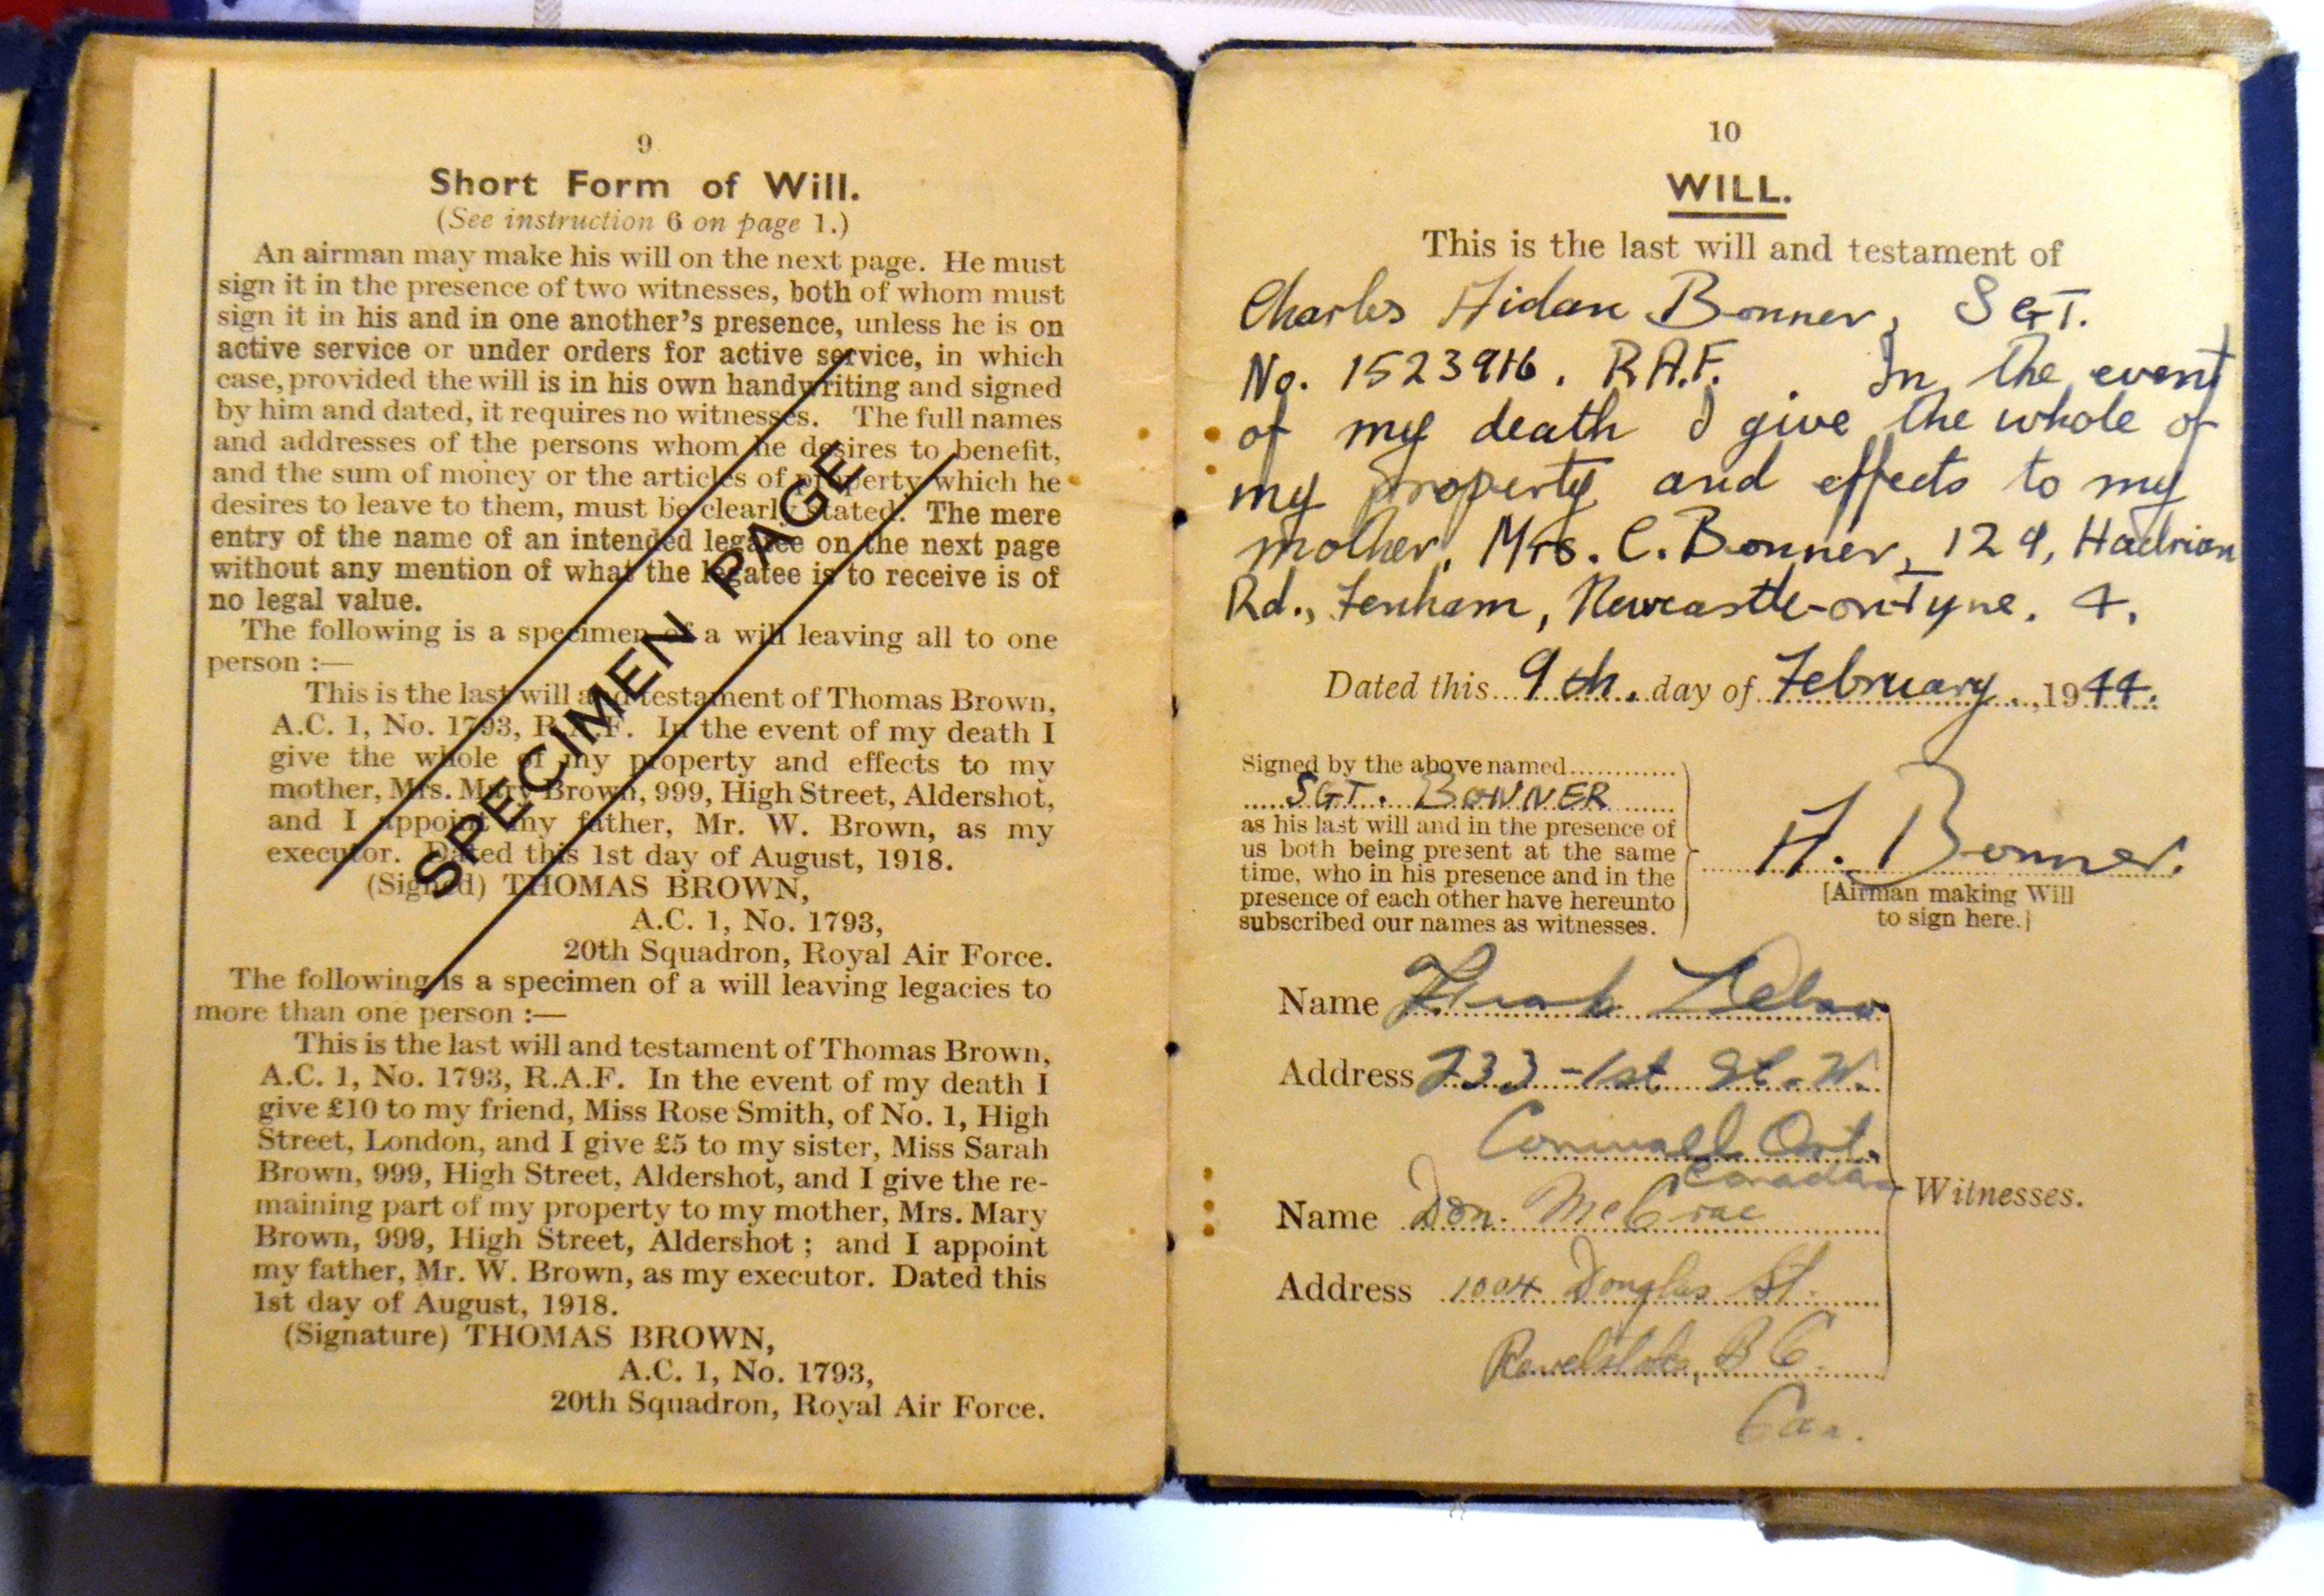 9
Short Form of Will.
(See instruction 6 on page 1.)
An airman may make his will on the next page. He must
sign it in the presence of two witnesses, both of whom must
sign it in his and in one another's presence, unless he is on
active service or under orders for active service, in which
case, provided the will is in his own handwriting and signed
by him and dated, it requires no witnesses. The full names
and addresses of the persons whom he desires to benefit,
and the sum of money or the articles of property which he
desires to leave to them, must be clearly stated. The mere
entry of the name of an intended legatee on the next page
without any mention of what the legatee is to receive is of
no legal value.
The following is a specimen of a will leaving all to one
person :—
This is the last will and testament of Thomas Brown,
A.C. 1, No. 1793, R.A.F. In the event of my death I
give the whole of my property and effects to my
mother, Mrs. Mary Brown, 999, High Street, Aldershot,
and I appoint my father, Mr. W. Brown, as my
executor. Dated this 1st day of August, 1918.
(Signed) THOMAS BROWN,
A.C. 1, No. 1793,
20th Squadron, Royal Air Force.
The following is a specimen of a will leaving legacies to
more than one person :—
This is the last will and testament of Thomas Brown,
A.C. 1, No. 1793, R.A.F. In the event of my death I
give £10 to my friend, Miss Rose Smith, of No. 1, High
Street, London, and I give £5 to my sister, Miss Sarah
Brown, 999, High Street, Aldershot, and I give the re-
maining part of my property to my mother, Mrs. Mary
Brown, 999, High Street, Aldershot ; and I appoint
my father, Mr. W. Brown, as my executor. Dated this
1st day of August, 1918.
(Signature) THOMAS BROWN,
A.C. 1, No. 1793,
20th Squadron, Royal Air Force.
SPECIMEN PAGE
10
WILL.
This is the last will and testament of
Charles Aidan Bonner, SGT.
No. R.A.F. In the event
of my death I give the whole of
my property and effects to my
mother, Mrs. C. Bonner, 129, Hadrian
Rd., Fenham, Newcastle-on-Tyne. 4.
Dated this 9th. day of February, 1944.
Signed by the above named
SGT. BONNER
as his last will and in the presence of
us both being present at the same
time, who in his presence and in the
presence of each other have hereunto
subscribed our names as witnesses.
A. Bonner.
[Airman making Will
to sign here.]
Name
Address 233 - 1st St. W.
Cornwall Ont.
Canada
Name Don. McCrae
Address 1004 Douglas St.
Revelstoke, B.C.
Can.
Witnesses.